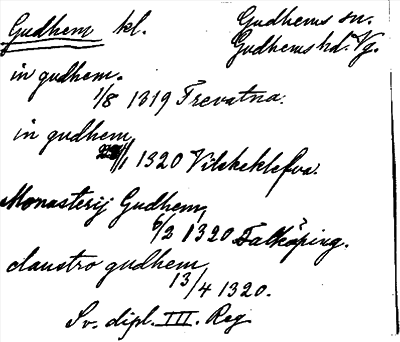 Gudhem kl. Gudhems sn.
Gudhems hd. Vg.
in gudhem.
1/8 1319 Trevatna.
in gudhem
1320 Vilskeklefva.
Monasterij Gudhem,
6/2 1320 Falköping.
claustro gudhem
13/4 1320.
Sv. dipl. III. Reg